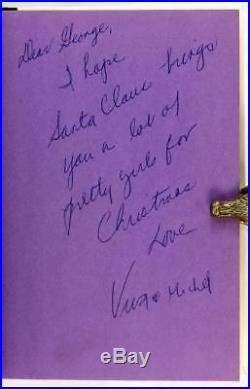 Dear George,
I hope
Santa Claus brings
you a lot of
pretty girls for
Christmas
Love
& Michel